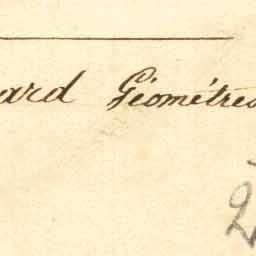 ard Géomètres
2